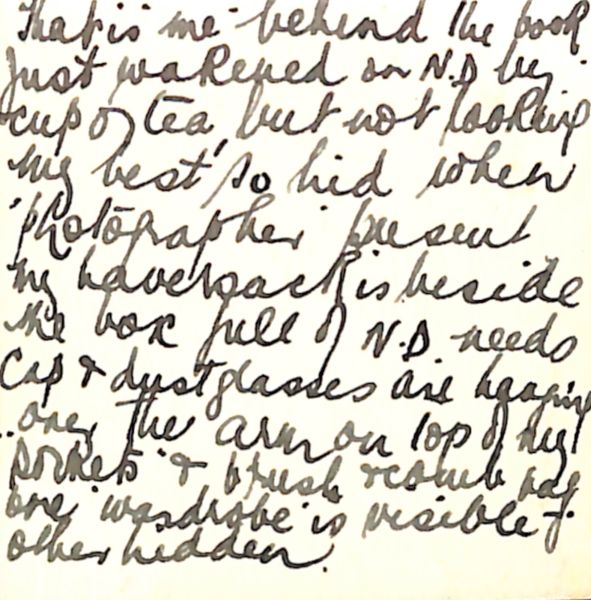 That is me behind the book
just wakened on N.D by
cup of tea, but not looking
my best so hid when
"photographer" present
my haversack is beside
the box full of N.D. needs
Cap & dustglasses are hanging
over the arm on top of my
pockets & brush & comb bag
one "wardrobe" is visible &
other hidden.